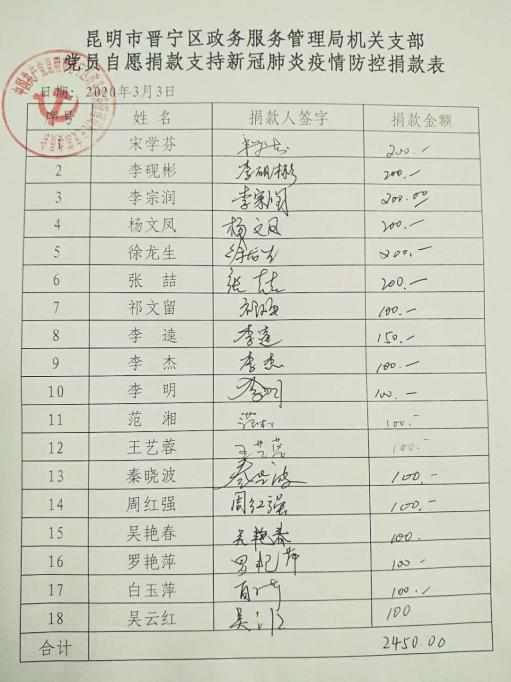 昆明市晋宁区政务服务管理局机关支部
党员自愿捐款支持新冠肺炎疫情防控捐款表
日期：2020年3月3日
序号 姓名 捐款人签字 捐款金额
1 宋学芬 200.-
2 李砚彬 李砚彬 200.-
3 李宗润 李宗润 200.00
4 杨文凤 杨文凤 200.-
5 徐龙生 徐龙生 200.-
6 张喆 张喆 200.-
7 祁文留 100.-
8 李逵 150.-
9 李杰 李杰 100.-
10 李明 李明 100.-
11 范湘 100.-
12 王艺蓉 王艺蓉 100.-
13 秦晓波 秦晓波 100.-
14 周红强 周红强 100.-
15 吴艳春 吴艳春 100.
16 罗艳萍 100.-
17 白玉萍 100.-
18 吴云红 100
合计 2450.00